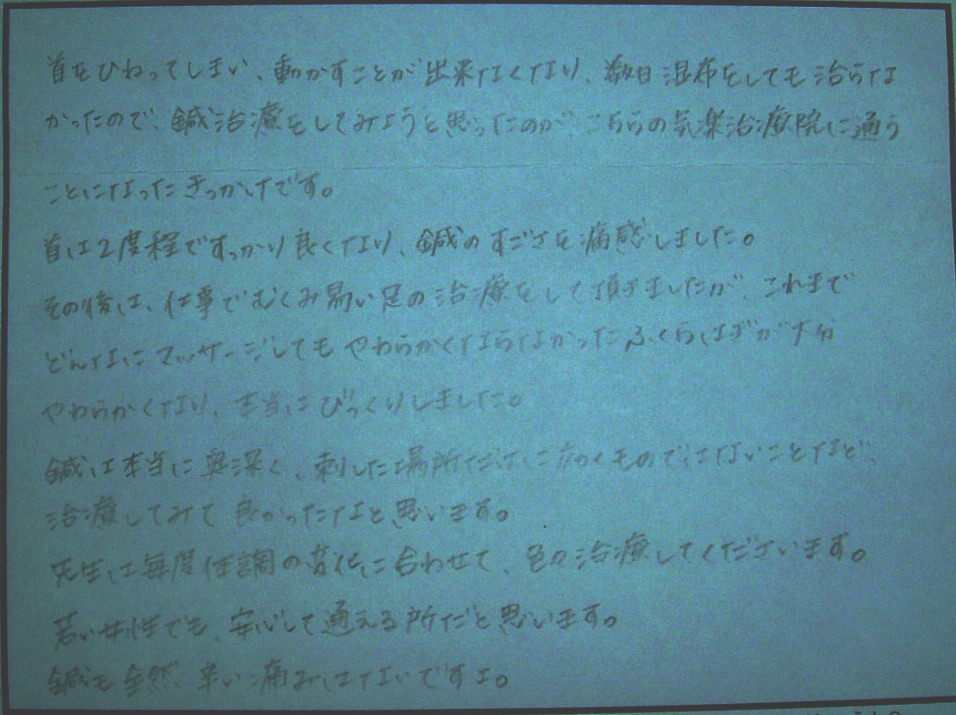 首をひねってしまい、動かすことが出来なくなり、数日湿布をしても治らな
かったので、鍼治療をしてみようと思ったのが、こちらの気楽治療院に通う
ことになったきっかけです。
首は2度程ですっかり良くなり、鍼のすごさを痛感しました。
その後は、仕事でむくみ易い足の治療をして頂きましたが、これまで
どんなにマッサージしてもやわらかくならなかったふくらはぎが大分
やわらかくなり、本当にびっくりしました。
鍼は本当に奥深く、刺した場所だけに効くものではないことなど、
治療してみて良かったなと思います。
先生は毎度体調の変化に合わせて、色々治療してくださいます。
若い女性でも、安心して通える所だと思います。
鍼も全然、辛い痛みはないですよ。